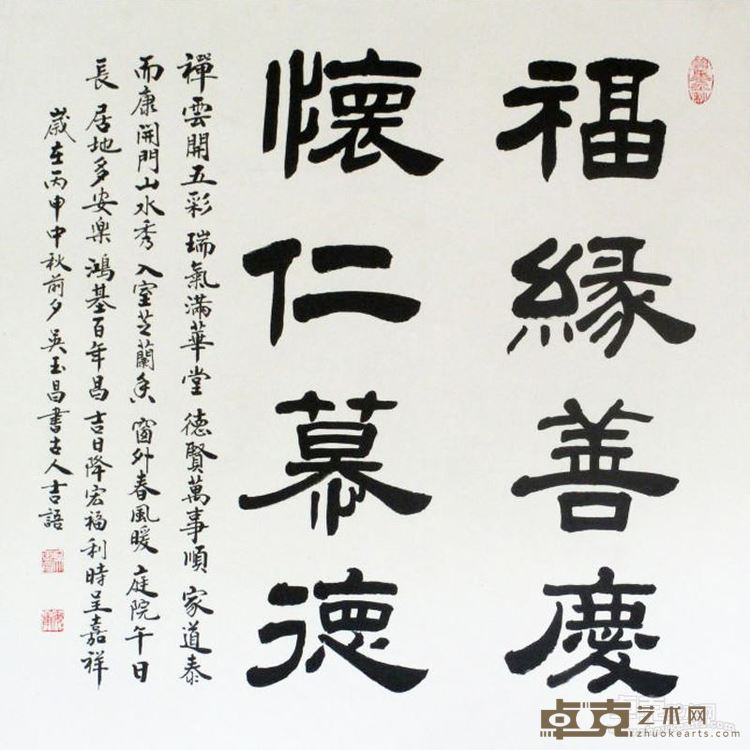 福緣善慶
懷仁慕德
禪雲開五彩 瑞氣滿華堂 德賢萬事順 家道泰
而康 開門山水秀 入室芝蘭香 窗外春風暖 庭院午日
長 居地多安樂 鴻基百年昌 吉日降宏福 利時呈嘉祥
歲在丙申中秋前夕 吳玉昌書古人吉語
卓克艺术网
zhuokearts.com